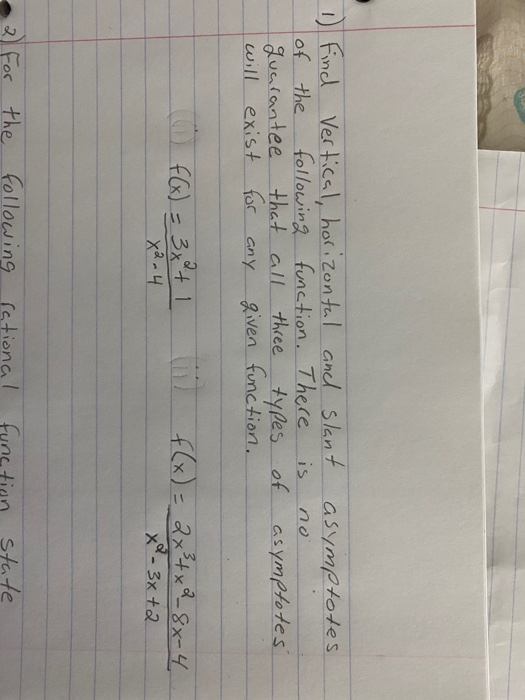 1) Find Vertical, horizontal and slant asymptotes
of the following function. There is no
guarantee that all three types of asymptotes
will exist for any given function.
(i) f(x) = 3x²+1 (ii) f(x) = 2x³+x²-8x-4
x²-4 x²-3x+2
2) For the following rational function state